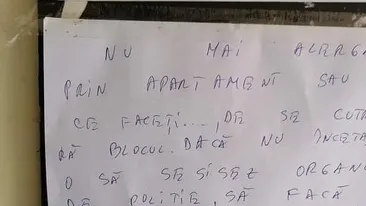 NU MAI ALERGA
PRIN APARTAMENT SAU
CE FACEȚI..., DE SE CUTR
RĂ BLOCUL. DACĂ NU ÎNCETA
O SĂ SESISEZ ORGANE
DE POLIȚIE, SĂ FACĂ